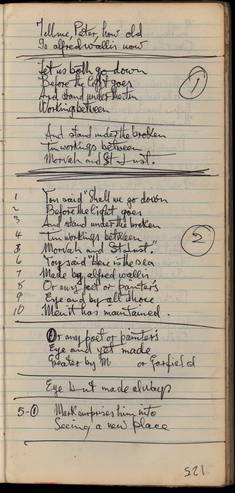 Tell me, Peter, how old
Is alfred wallis now
Let us both go down
Before the light goes
And stand under the tin
Working between
1
And stand under the broken
Tin workings between
Morvah and St Just.
1 You said "Shall we go down
2 Before the light goes
3 And stand under the broken
4 Tin workings between
5 Morvah and St Just"
6 You said "Here is the sea
7 Made by alfred wallis
8 Or any poet or painter's
9 Eye and by all those
10 Men it has maintained.
2
Or any poet or painter's
Eye and yet made
Greater by M or Garfield
Eye but made always
5-1 Men surprises him into
Seeing a new place
521